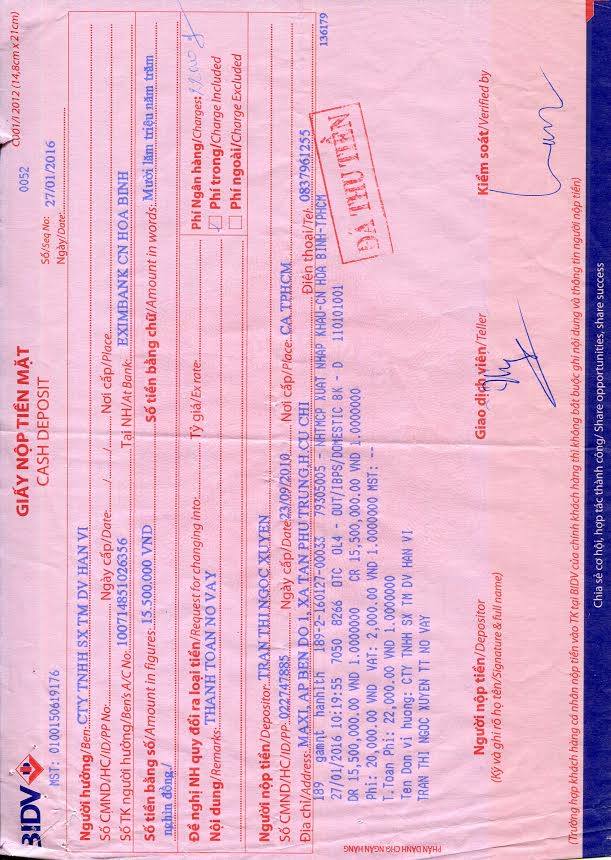 BIDV
MST: 0100150619176
GIẤY NỘP TIỀN MẶT
CASH DEPOSIT
0052 C001/1 2012 (14,8cm x 21cm)
Số/Seq No:
Ngày/Date: 27/01/2016
Người hưởng/Ben: CTY TNHH SX TM DV HAN VI
Số CMND/HC/ID/PP No: Ngày cấp/Date: / / Nơi cấp/Place
Số TK người hưởng/Ben's A/C No: 100714851026356 Tại NH/At Bank: EXIMBANK CN HOA BINH
Số tiền bằng số/Amount in figures: 15.500.000 VND Số tiền bằng chữ/Amount in words: Mười lăm triệu năm trăm
nghìn đồng./
Đề nghị NH quy đổi ra loại tiền/Request for changing into: Tỷ giá/Ex rate: Phí Ngân hàng/Charges:
Nội dung/Remarks: THANH TOAN NO VAY Phí trong/Charge Included
Phí ngoài/Charge Excluded
Người nộp tiền/Depositor: TRAN THI NGOC XUYEN
Số CMND/HC/ID/PP: 022747885 Ngày cấp/Date: 23/09/2010 Nơi cấp/Place: CA TPHCM
Địa chỉ/Address: MAX1, AP BEN DO 1, XA TAN PHU TRUNG.H CU CHI Điện thoại/Tel: 0837961255
136179
189 gamnt hanhlth 189-2-160127-00033 79305005 - NHTMCP XUAT NHAP KHAU-CN HOA BINH-TPHCM
27/01/2016 10:19:55 7050 B266 OTC OL4 - OUT/IBPS/DOMESTIC BK - D 110101001
DR 15,500,000.00 VND 1.0000000 CR 15,500,000.00 VND 1.0000000
Phi: 20,000.00 VND VAT: 2,000.00 VND 1.0000000 MST: --
T.Toan Phi: 22,000.00 VND 1.0000000
Ten Don vi Huong: CTY TNHH SX TM DV HAN VI
TRAN THI NGOC XUYEN TT NO VAY
ĐÃ THU TIỀN
Người nộp tiền/Depositor Giao dịch viên/Teller Kiểm soát/Verified by
(Ký và ghi rõ họ tên/Signature & full name)
PHẦN DÀNH CHO NGÂN HÀNG
(Trường hợp khách hàng cá nhân nộp tiền vào TK tại BIDV của chính khách hàng thì không bắt buộc ghi nội dung và thông tin người nộp tiền)
Chia sẻ cơ hội, hợp tác thành công/ Share opportunities, share success